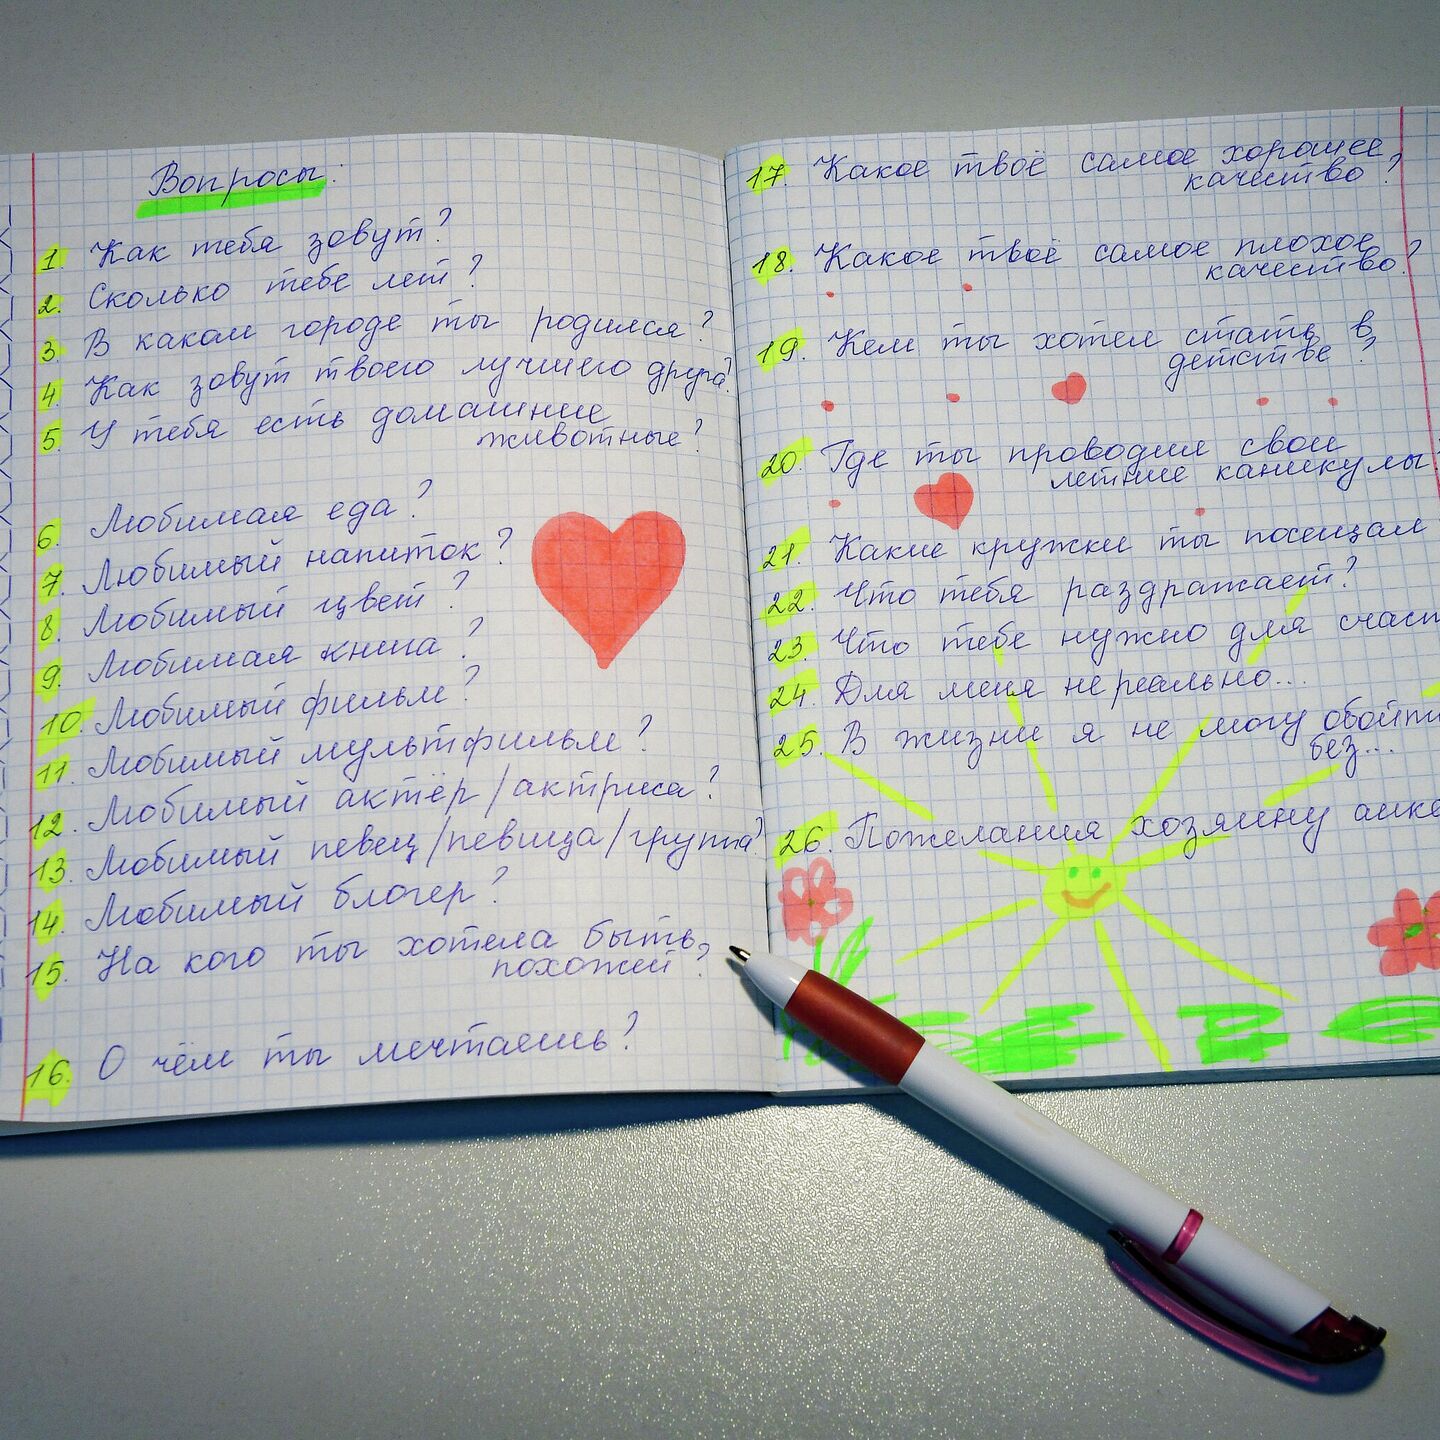 Вопросы:
1. Как тебя зовут?
2. Сколько тебе лет?
3. В каком городе ты родился?
4. Как зовут твоего лучшего друга?
5. У тебя есть домашние
животные?
6. Любимая еда?
7. Любимый напиток?
8. Любимый цвет?
9. Любимая книга?
10. Любимый фильм?
11. Любимый мультфильм?
12. Любимый актёр/актриса?
13. Любимый певец/певица/группа?
14. Любимый блогер?
15. На кого ты хотела быть
похожей?
16. О чём ты мечтаешь?
17. Какое твоё самое хорошее
качество?
18. Какое твоё самое плохое
качество?
19. Кем ты хотел стать в
детстве?
20. Где ты проводил свои
летние каникулы?
21. Какие кружки ты посещал
22. Что тебя раздражает?
23. Что тебе нужно для счаст
24. Для меня нереально...
25. В жизни я не могу обойти
без...
26. Пожелания хозяину анке